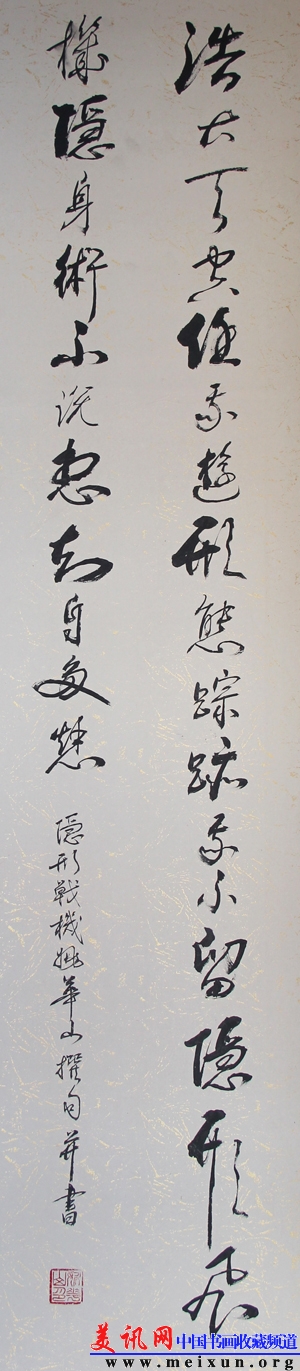 浩大天空任我遊形態蹤跡我不留隱形飛
機隱身術不說您知自多愁
隱形戰機姚華山撰句并書
美讯网 中国书画收藏频道
www.meixun.org